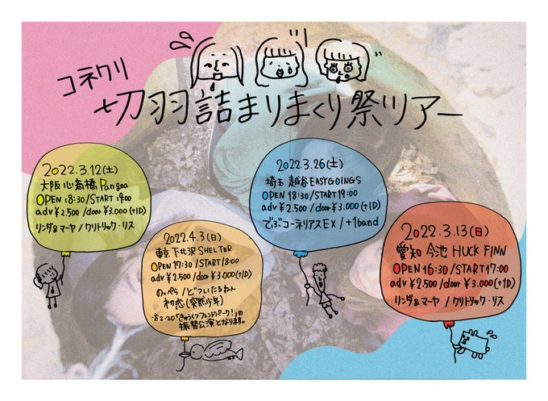 コネクリ
切羽詰まりまくり祭ツアー
2022.3.12(土)
大阪 心斎橋 Pangea
OPEN 18:30/START 19:00
adv ¥2.500/door ¥3.000(+1D)
リンダ&マーヤ/クリトリック・リス
2022.4.3(日)
東京 下北沢 SHELTER
OPEN 17:30/START 18:00
adv ¥2.500/door ¥3.000(+1D)
のいぺら/どついたるねん
初恋(突然少年)
振替公演となります。
2022.3.26(土)
埼玉 越谷 EASYGOINGS
OPEN 18:30/START 19:00
adv ¥2.500/door ¥3.000(+1D)
でぶコーネリアスEX/+1band
2022.3.13(日)
愛知 今池 HUCK FINN
OPEN 16:30/START 17:00
adv ¥2.500/door ¥3.000(+1D)
リンダ&マーヤ/クリトリック・リス